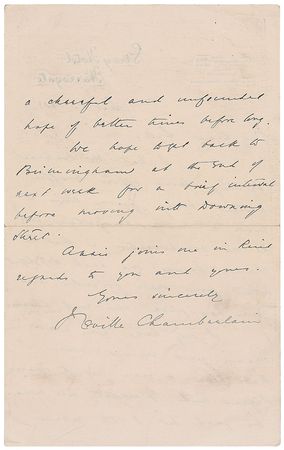 a cheerful and unfounded
hope of better times before long.
We hope to get back to
Birmingham at the end of
next week for a brief interval
before moving into Downing
Street.
Annie joins me in kind
regards to you and yours.
Yours sincerely
Neville Chamberlain